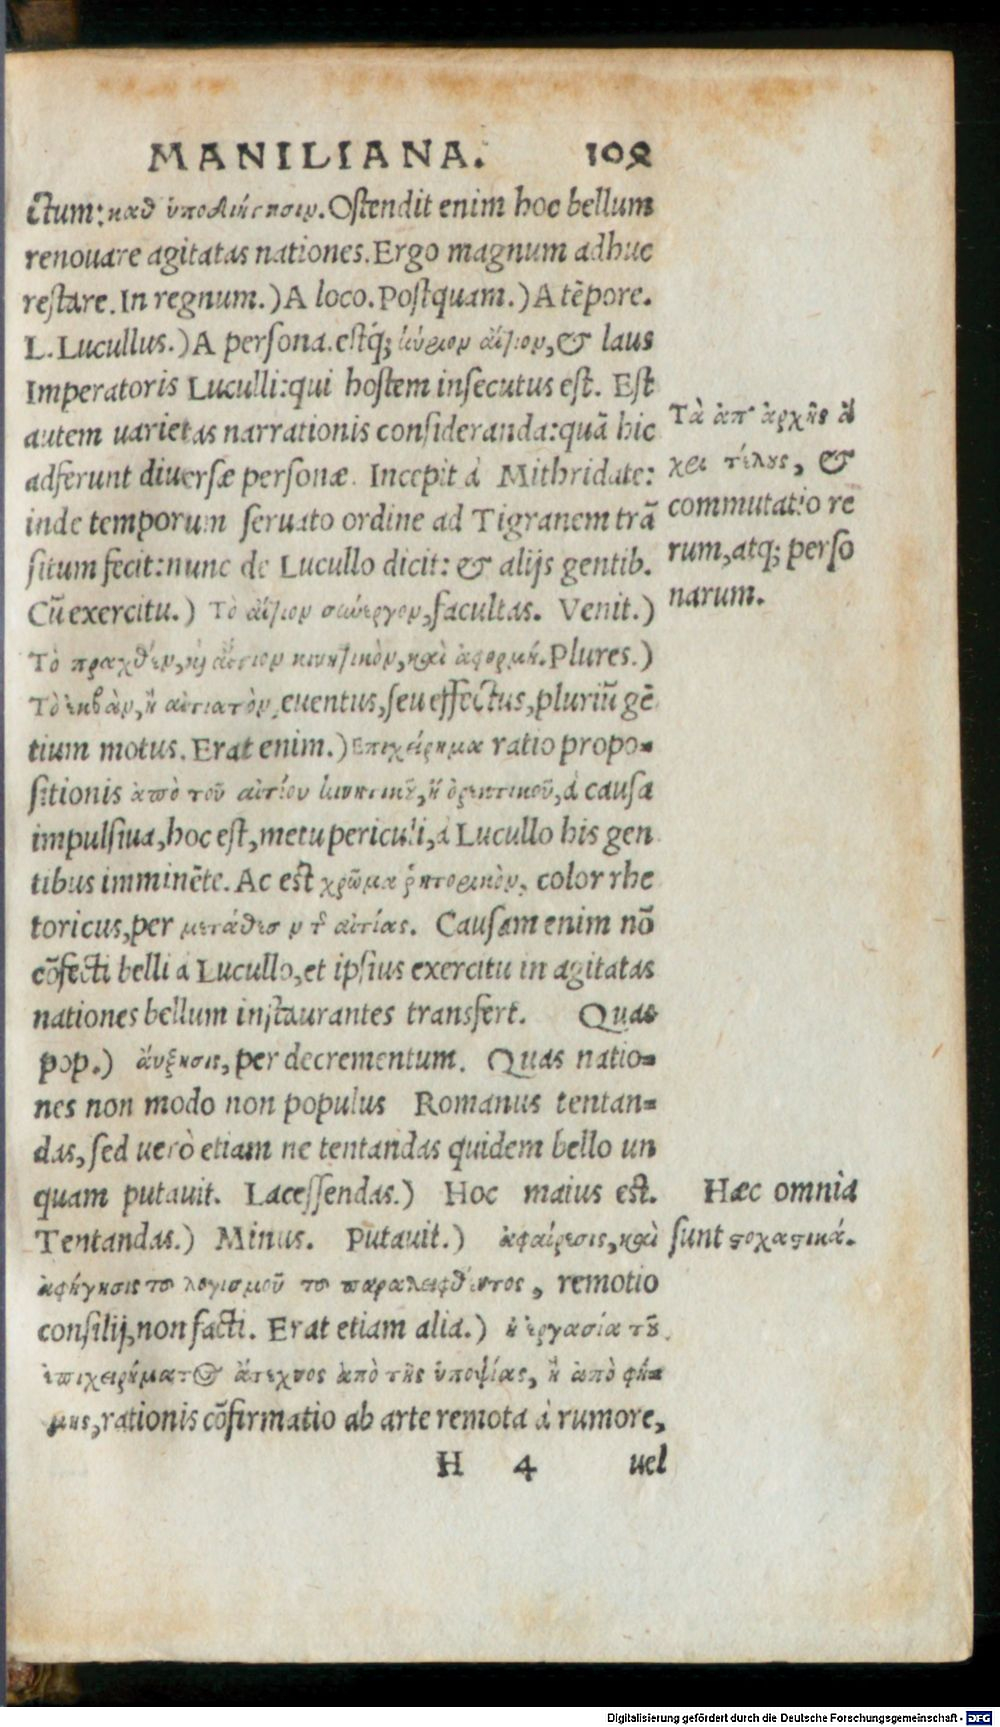 MANILIANA. 102
ctum: καθ ὑποδιαίρεσιν. Ostendit enim hoc bellum
renouare agitatas nationes. Ergo magnum adhuc
restare. In regnum.) A loco. Postquam.) A tẽpore.
L. Lucullus.) A persona. estq́; κύριον αἴτιον, & laus
Imperatoris Luculli: qui hostem insecutus est. Est
autem uarietas narrationis consideranda: quã hic
adferunt diuersæ personæ. Incepit à Mithridate:
inde temporum seruato ordine ad Tigranem trã
situm fecit: nunc de Lucullo dicit: & alijs gentib.
Cũ exercitu.) Τὸ αἴτιον σωεργον, facultas. Venit.)
Τὸ πραχθὲν, ϗ αἴτιον κινητικὸν, καὶ ἀφορμή. Plures.)
Τὸ ἐκβὰν, ἢ αἰτιατὸν, euentus, seu effectus, pluriũ gẽ
tium motus. Erat enim.) Επιχείρημα ratio propo-
sitionis ἀπὸ τοῦ αἰτίου κινητικȣ͂, ἢ ὁρμητικοῦ, à causa
impulsiua, hoc est, metu periculi, à Lucullo his gen
tibus imminẽte. Ac est χρῶμα ῥητορικὸν, color rhe
toricus, per μετάθεσιν τ͂ αἰτίας. Causam enim nõ
cõfecti belli a Lucullo, et ipsius exercitu in agitatas
nationes bellum instaurantes transfert. Quas
pop.) ἄυξησις, per decrementum. Quas natio-
nes non modo non populus Romanus tentan-
das, sed uerò etiam ne tentandas quidem bello un
quam putauit. Lacessendas.) Hoc maius est.
Tentandas.) Minus. Putauit.) ἀφαίρεσις, καὶ
ἀφήγησις το λογισμοῦ το παραλειφθέντος, remotio
consilij, non facti. Erat etiam alia.) ἡ ἐργασία τȣ͂
ἐπιχειρήματος ἄτεχνος ἀπὸ τῆς ὑποψίας, ἢ ἀπὸ φή-
μης, rationis cõfirmatio ab arte remota à rumore,
H 4 uel
Τὰ ἀπ' ἀρχῆς ἄ
χρι τέλȣς, &
commutatio re
rum, atq; perso
narum.
Hæc omnia
sunt ϛοχαϛικά.
Digitalisierung gefördert durch die Deutsche Forschungsgemeinschaft - DFG